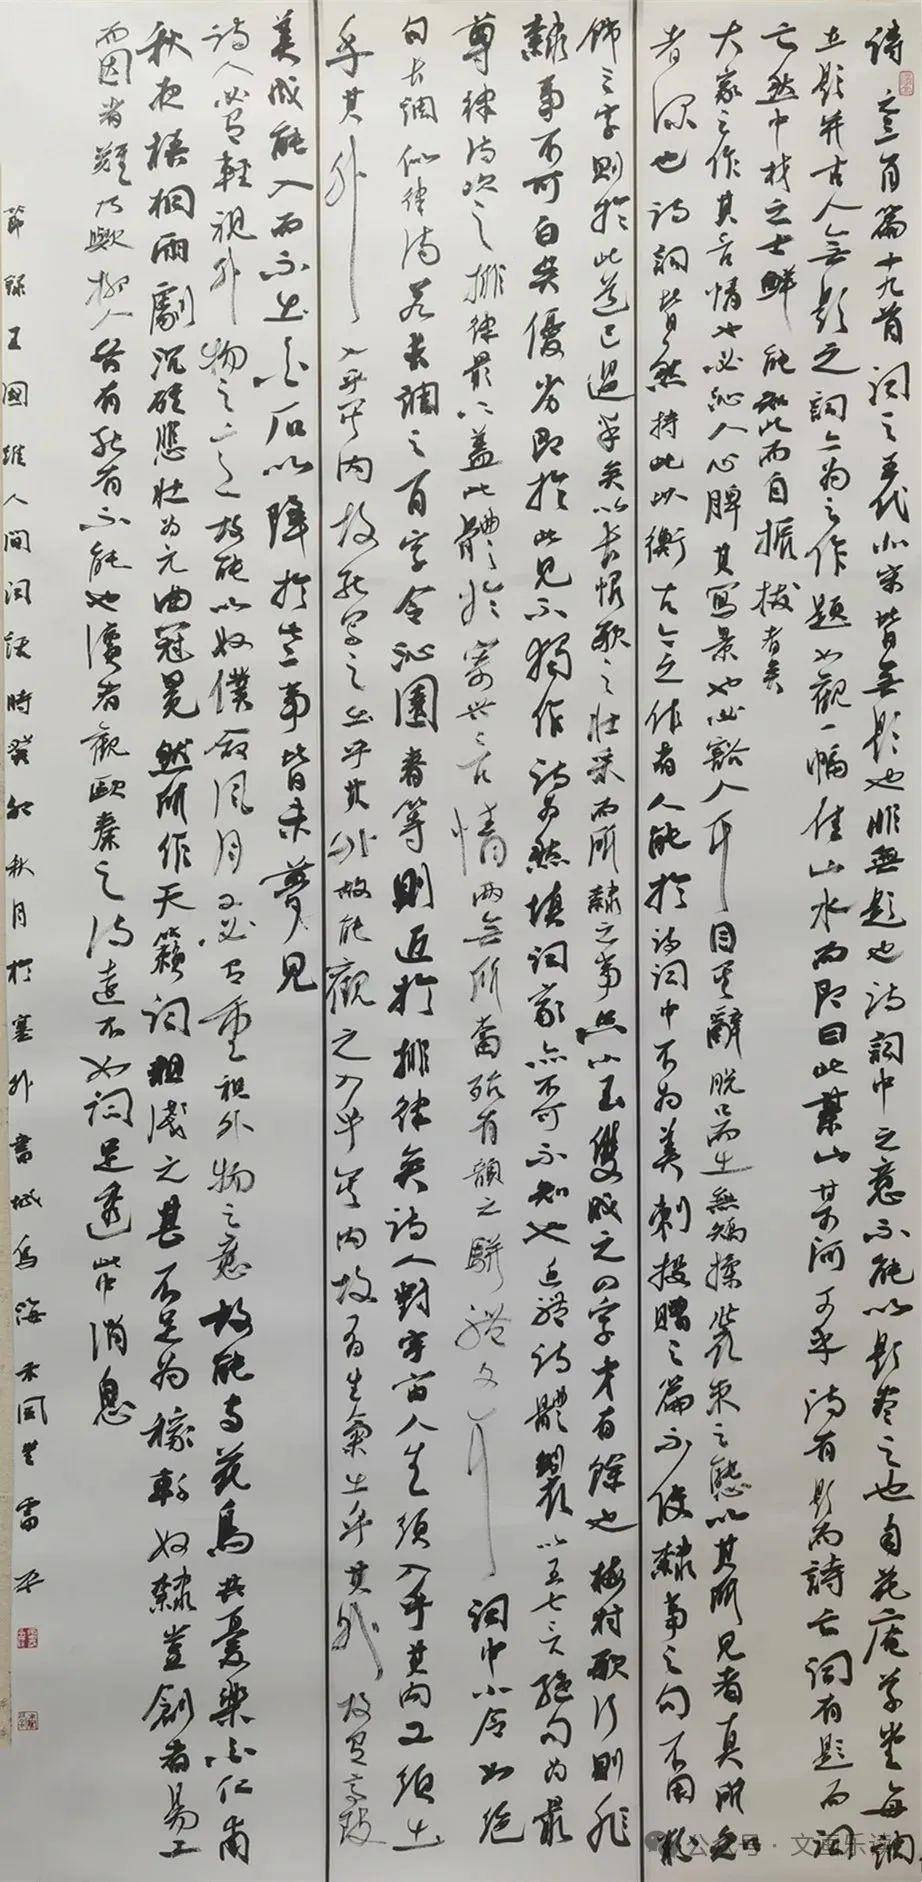 詩之三百篇十九首詞之五代北宋皆無題也非無題也詩詞中之意不能以題盡之也自花庵草堂每調
立題并古人無題之詞亦為之作題如觀一幅佳山水而即曰此某山某河可乎詩有題而詩亡詞有題而詞
亡然中材之士鮮能知此而自振拔者矣
大家之作其言情也必沁人心脾其寫景也必豁人耳目其辭脫口而出無矯揉裝束之態以其所見者真所知
者深也詩詞皆然持此以衡古今之作者人能於詩詞中不為美刺投贈之篇不使隸事之句不用粉
飾之字則於此道已過半矣以長恨歌之壯采而所隸之事只小玉雙成之四字才有餘也梅村歌行則非
隸事不可白吳優劣即於此見不獨作詩為然填詞家亦不可不知也近體詩體製以五七言絕句為最
尊律詩次之排律最下蓋此體於寄興言情兩無所當殆有韻之駢體文耳詞中小令如絕
句長調似律詩若長調之百字令沁園春等則近於排律矣詩人對宇宙人生須入乎其內又須出
乎其外入乎其內故能寫之出乎其外故能觀之入乎其內故有生氣出乎其外故有高致
美成能入而不出白石以降於此二事皆未夢見
詩人必有輕視外物之意故能以奴僕命風月又必有重視外物之意故能與花鳥共憂樂白仁甫
秋夜梧桐雨劇沉雄悲壯為元曲冠冕然所作天籟詞粗淺之甚不足為稼軒奴隸豈創者易工
而因者難巧歟抑人各有能有不能也讀者觀歐秦之詩遠不如詞足透此中消息
節錄王國維人間詞話時癸卯秋月於塞外書城烏海禾風堂雷平
公众号·文画乐谈